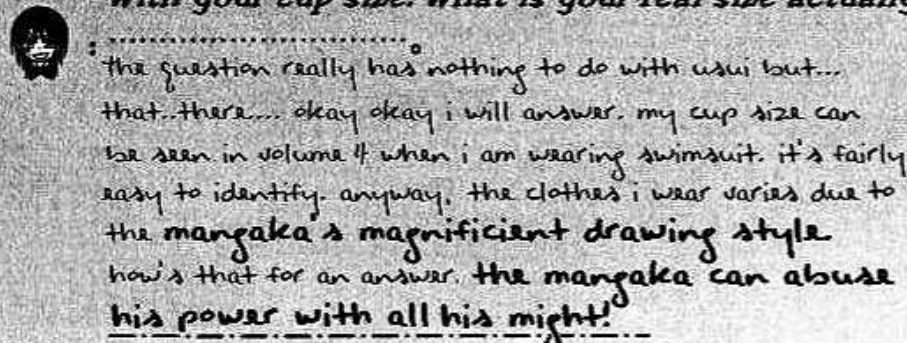 with your cup size. what is your real size actually
: ..............................。
the question really has nothing to do with usui but...
that..there.... okay okay i will answer. my cup size can
be seen in volume 4 when i am wearing swimsuit. it's fairly
easy to identify. anyway, the clothes i wear varies due to
the mangaka's magnificient drawing style
how's that for an answer. the mangaka can abuse
his power with all his might!